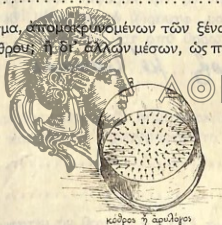 μα, απομακρυνομένων τῶν ξένα
θρου; ἢ δι' ἄλλων μέσων, ὡς π
ΑΘ
κόθρος ἢ ἀρυλόγος